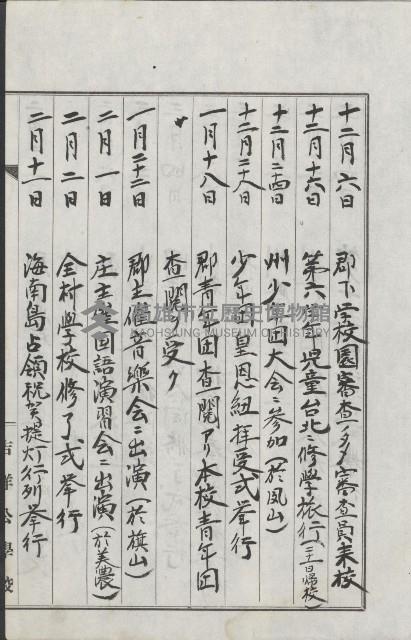 十二月六日　郡下学校園審査ノタメ審査員来校
十二月十六日　第六学年児童台北ニ修学旅行（二十一日帰校）
十二月二四日　州少年団大会ニ参加（於鳳山）
十二月二十八日　少年団皇恩紐拝受式挙行
一月十八日　郡青年団査閲アリ本校青年団
〃　査閲受ク
一月二十二日　郡主催音楽会ニ出演（於旗山）
二月一日　庄主催国語演習会ニ出演（於美濃）
二月二日　全村学校修了式挙行
二月十一日　海南島占領祝賀提灯行列挙行
吉洋公學校
高雄市立歷史博物館
KAOHSIUNG MUSEUM OF HISTORY